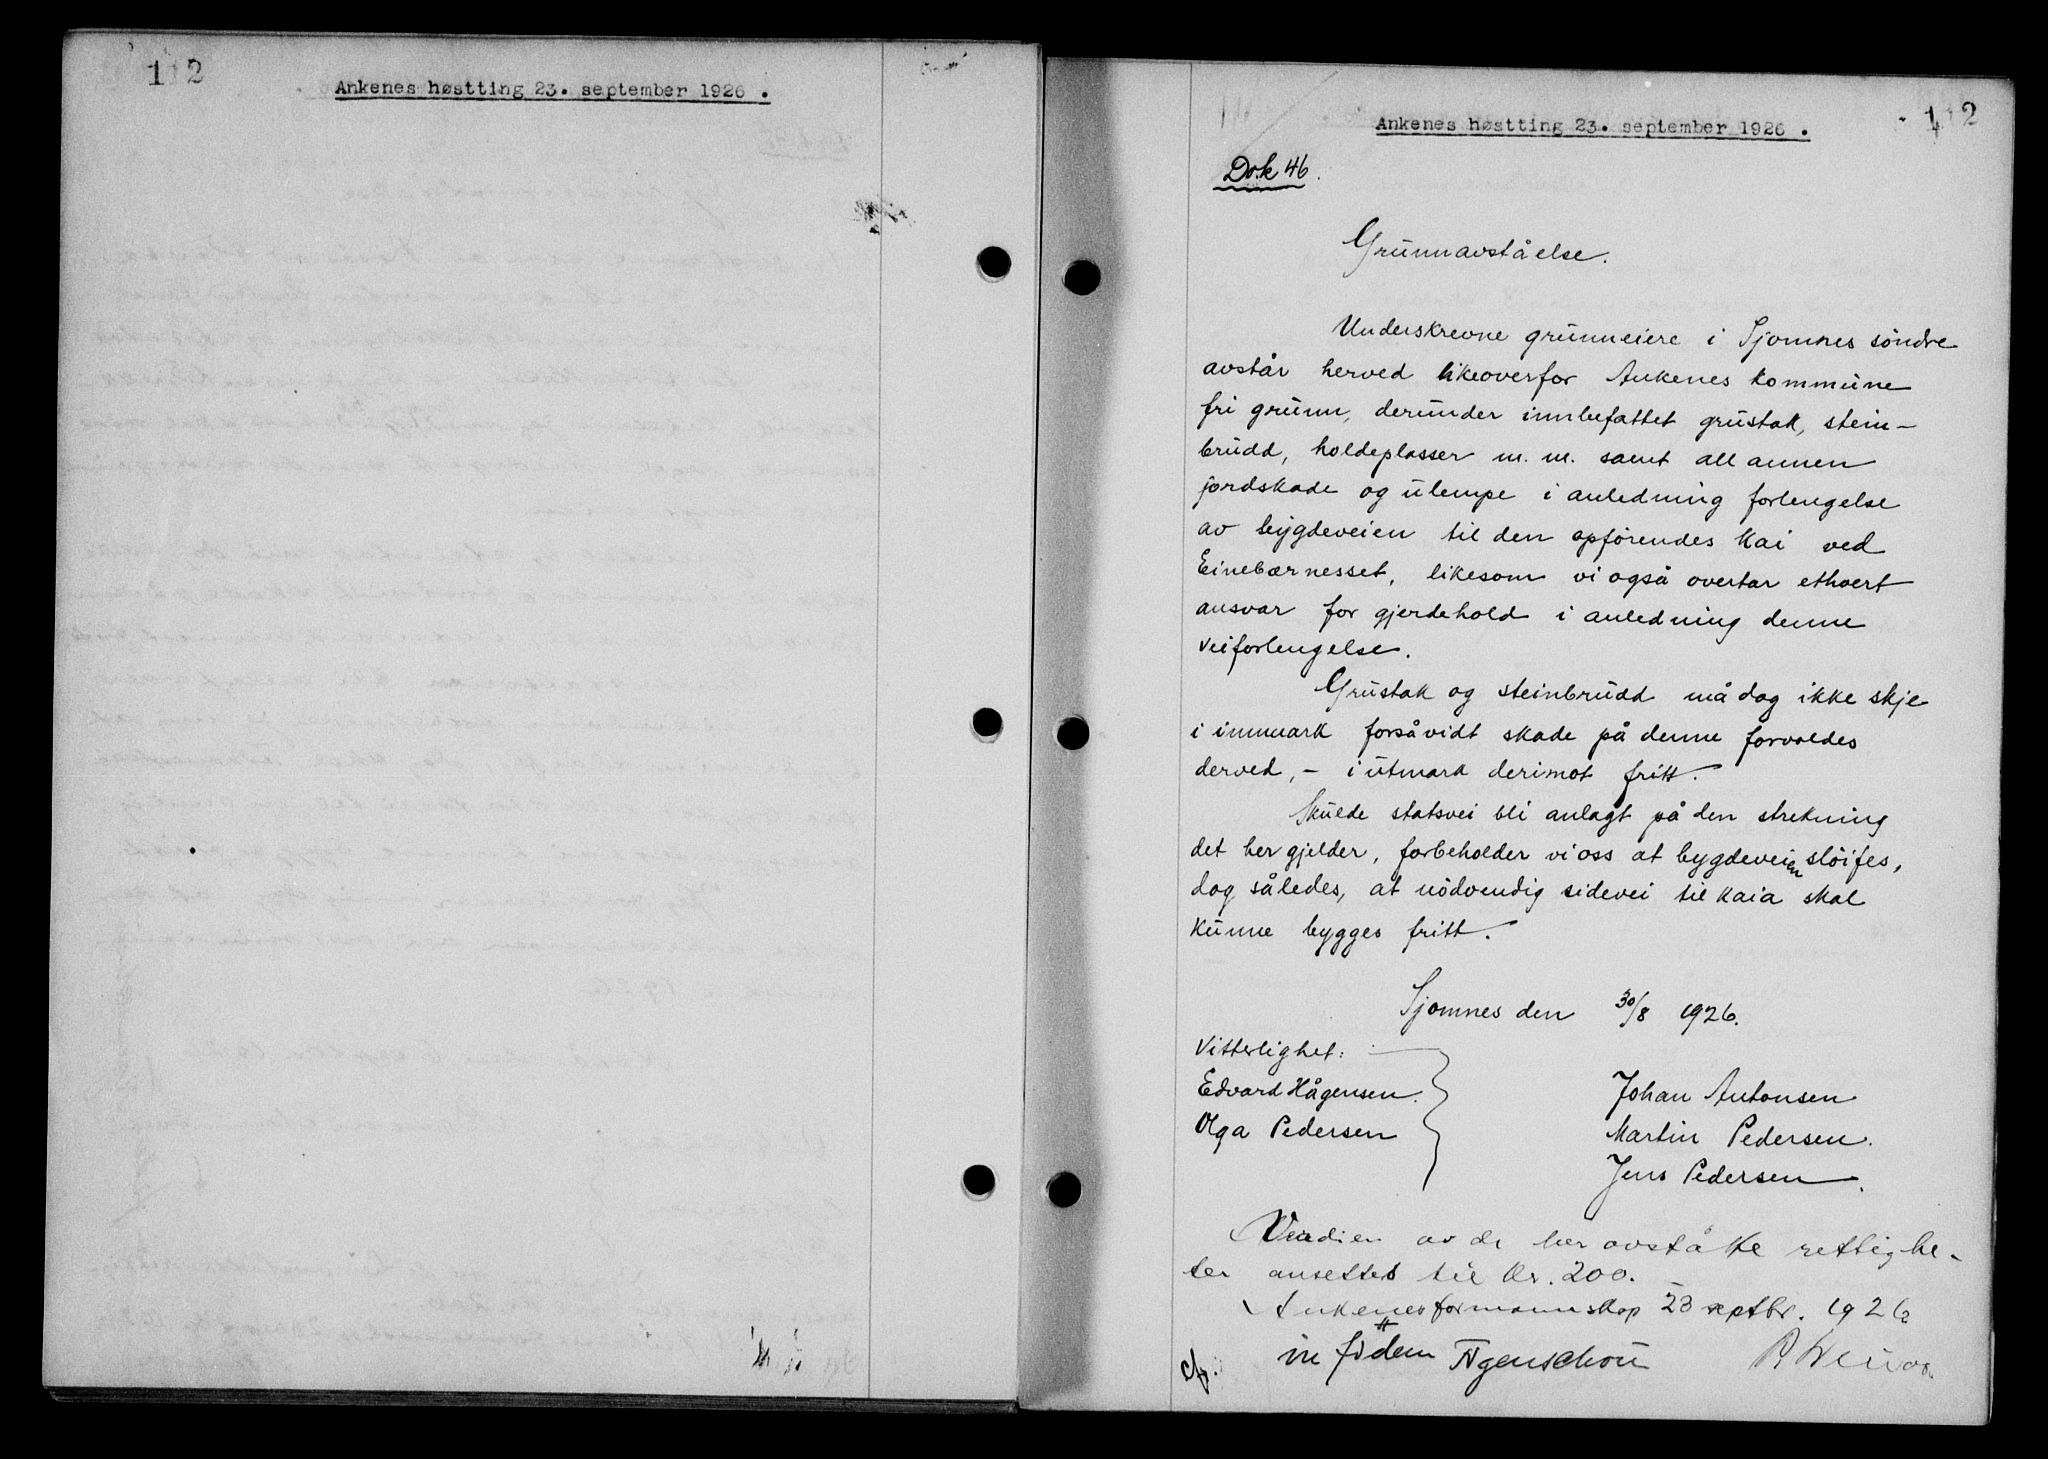 112
Ankenes høstting 23. september 1926.
112
Ankenes høstting 23. september 1926.
Dok 46.
Grunnavståelse.
Underskrevne grunneiere i Sjomnes söndre
avstår herved likeoverfor Ankenes kommune
fri grunn, derunder innbefattet grustak, stein-
brudd, holdeplasser m.m. samt all annen
jordskade og ulempe i anledning forlengelse
av bygdeveien til den opförendes kai ved
Einebærnesset, likesom vi også overtar ethvert
ansvar for gjerdehold i anledning denne
veiforlengelse.
Grustak og steinbrudd må dog ikke skje
i innmark forsåvidt skade på denne forvoldes
derved, - i utmark derimot fritt.
Skulde statsvei bli anlagt på den strekning
det her gjelder, forbeholder vi oss at bygdeveien slöifes,
dog således, at nödvendig sidevei til kaia skal
kunne bygges fritt.
Sjomnes den 30/8 1926.
Vitterlighet:
Edvard Hågensen.
Olga Pedersen
Johan Antonsen
Martin Pedersen.
Jens Pedersen.
Verdien av de her avståtte rettighe-
ter ansettes til kr. 200.
Ankenes formannskap 23 septbr. 1926
in fidem Agenschou
cf.